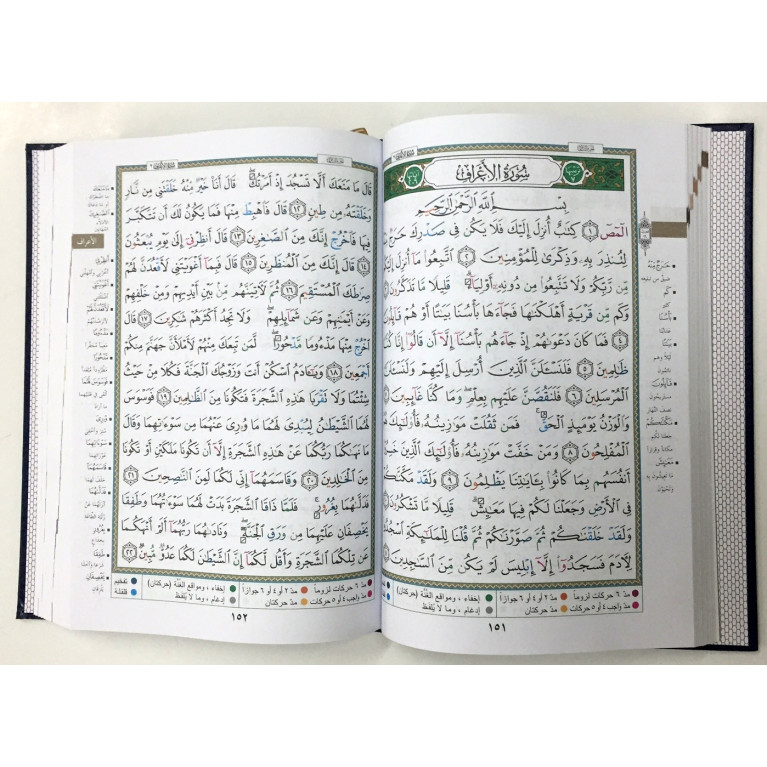 سُورَةُ الأَعْرَافِ
بِسْمِ اللَّهِ الرَّحْمَٰنِ الرَّحِيمِ
الٓمٓصٓ ١ كِتَٰبٌ أُنزِلَ إِلَيْكَ فَلَا يَكُن فِي صَدْرِكَ حَرَجٌ
لِتُنذِرَ بِهِۦ وَذِكْرَىٰ لِلْمُؤْمِنِينَ ٢ ٱتَّبِعُوا۟ مَآ أُنزِلَ
مِّن رَّبِّكُمْ وَلَا تَتَّبِعُوا۟ مِن دُونِهِۦٓ أَوْلِيَآءَ ۗ قَلِيلًا مَّا تَذَكَّرُونَ
وَكَم مِّن قَرْيَةٍ أَهْلَكْنَٰهَا فَجَآءَهَا بَأْسُنَا بَيَٰتًا أَوْ هُمْ قَآئِلُونَ
٤ فَمَا كَانَ دَعْوَىٰهُمْ إِذْ جَآءَهُم بَأْسُنَآ إِلَّآ أَن قَالُوٓا۟ إِنَّا كُنَّا
ظَٰلِمِينَ ٥ فَلَنَسْـَٔلَنَّ ٱلَّذِينَ أُرْسِلَ إِلَيْهِمْ وَلَنَسْـَٔلَنَّ
ٱلْمُرْسَلِينَ ٦ فَلَنَقُصَّنَّ عَلَيْهِم بِعِلْمٍ ۖ وَمَا كُنَّا غَآئِبِينَ ٧
وَٱلْوَزْنُ يَوْمَئِذٍ ٱلْحَقُّ ۚ فَمَن ثَقُلَتْ مَوَٰزِينُهُۥ فَأُو۟لَٰٓئِكَ هُمُ
ٱلْمُفْلِحُونَ ٨ وَمَنْ خَفَّتْ مَوَٰزِينُهُۥ فَأُو۟لَٰٓئِكَ ٱلَّذِينَ خَسِرُوٓا۟
أَنفُسَهُم بِمَا كَانُوا۟ بِـَٔايَٰتِنَا يَظْلِمُونَ ٩ وَلَقَدْ مَكَّنَّٰكُمْ
فِي ٱلْأَرْضِ وَجَعَلْنَا لَكُمْ فِيهَا مَعَٰيِشَ ۗ قَلِيلًا مَّا تَشْكُرُونَ
وَلَقَدْ خَلَقْنَٰكُمْ ثُمَّ صَوَّرْنَٰكُمْ ثُمَّ قُلْنَا لِلْمَلَٰٓئِكَةِ ٱسْجُدُوا۟
لِءَادَمَ فَسَجَدُوٓا۟ إِلَّآ إِبْلِيسَ لَمْ يَكُن مِّنَ ٱلسَّٰجِدِينَ
مدّ ٦ حركات لزوماً مدّ ٢ أو ٤ أو ٦ جوازاً إخفاء، ومواقع الغُنَّة (حركتان) تفخيم
مدّ واجب ٤ أو ٥ حركات مدّ حركتان إدغام، وما لا يُلفَظ قلقلة
١٥١
حَرَجٌ مِنْهُ
كَم
بَأْسُنَا
بَيَٰتًا
قَآئِلُونَ
مَكَّنَّٰكُمْ
مَعَٰيِشَ
قَالَ مَا مَنَعَكَ أَلَّا تَسْجُدَ إِذْ أَمَرْتُكَ ۖ قَالَ أَنَا۠ خَيْرٌ مِّنْهُ خَلَقْتَنِي مِن نَّارٍ
وَخَلَقْتَهُۥ مِن طِينٍ ١٢ قَالَ فَٱهْبِطْ مِنْهَا فَمَا يَكُونُ لَكَ أَن تَتَكَبَّرَ
فِيهَا فَٱخْرُجْ إِنَّكَ مِنَ ٱلصَّٰغِرِينَ ١٣ قَالَ أَنظِرْنِيٓ إِلَىٰ يَوْمِ يُبْعَثُونَ
١٤ قَالَ إِنَّكَ مِنَ ٱلْمُنظَرِينَ ١٥ قَالَ فَبِمَآ أَغْوَيْتَنِي لَأَقْعُدَنَّ لَهُمْ
صِرَٰطَكَ ٱلْمُسْتَقِيمَ ١٦ ثُمَّ لَـَٔاتِيَنَّهُم مِّنۢ بَيْنِ أَيْدِيهِمْ وَمِنْ خَلْفِهِمْ
وَعَنْ أَيْمَٰنِهِمْ وَعَن شَمَآئِلِهِمْ ۖ وَلَا تَجِدُ أَكْثَرَهُمْ شَٰكِرِينَ ١٧ قَالَ
ٱخْرُجْ مِنْهَا مَذْءُومًا مَّدْحُورًا ۖ لَّمَن تَبِعَكَ مِنْهُمْ لَأَمْلَأَنَّ جَهَنَّمَ مِنكُمْ
أَجْمَعِينَ ١٨ وَيَٰٓـَٔادَمُ ٱسْكُنْ أَنتَ وَزَوْجُكَ ٱلْجَنَّةَ فَكُلَا مِنْ حَيْثُ
شِئْتُمَا وَلَا تَقْرَبَا هَٰذِهِ ٱلشَّجَرَةَ فَتَكُونَا مِنَ ٱلظَّٰلِمِينَ ١٩ فَوَسْوَسَ
لَهُمَا ٱلشَّيْطَٰنُ لِيُبْدِيَ لَهُمَا مَا وُۥرِيَ عَنْهُمَا مِن سَوْءَٰتِهِمَا وَقَالَ
مَا نَهَىٰكُمَا رَبُّكُمَا عَنْ هَٰذِهِ ٱلشَّجَرَةِ إِلَّآ أَن تَكُونَا مَلَكَيْنِ أَوْ تَكُونَا
مِنَ ٱلْخَٰلِدِينَ ٢٠ وَقَاسَمَهُمَآ إِنِّي لَكُمَا لَمِنَ ٱلنَّٰصِحِينَ ٢١
فَدَلَّىٰهُمَا بِغُرُورٍ ۚ فَلَمَّا ذَاقَا ٱلشَّجَرَةَ بَدَتْ لَهُمَا سَوْءَٰتُهُمَا وَطَفِقَا
يَخْصِفَانِ عَلَيْهِمَا مِن وَرَقِ ٱلْجَنَّةِ ۖ وَنَادَىٰهُمَا رَبُّهُمَآ أَلَمْ أَنْهَكُمَا
عَن تِلْكُمَا ٱلشَّجَرَةِ وَأَقُل لَّكُمَآ إِنَّ ٱلشَّيْطَٰنَ لَكُمَا عَدُوٌّ مُّبِينٌ ٢٢
مدّ ٦ حركات لزوماً مدّ ٢ أو ٤ أو ٦ جوازاً إخفاء، ومواقع الغُنَّة (حركتان) تفخيم
مدّ واجب ٤ أو ٥ حركات مدّ حركتان إدغام، وما لا يُلفَظ قلقلة
١٥٢
الأعراف